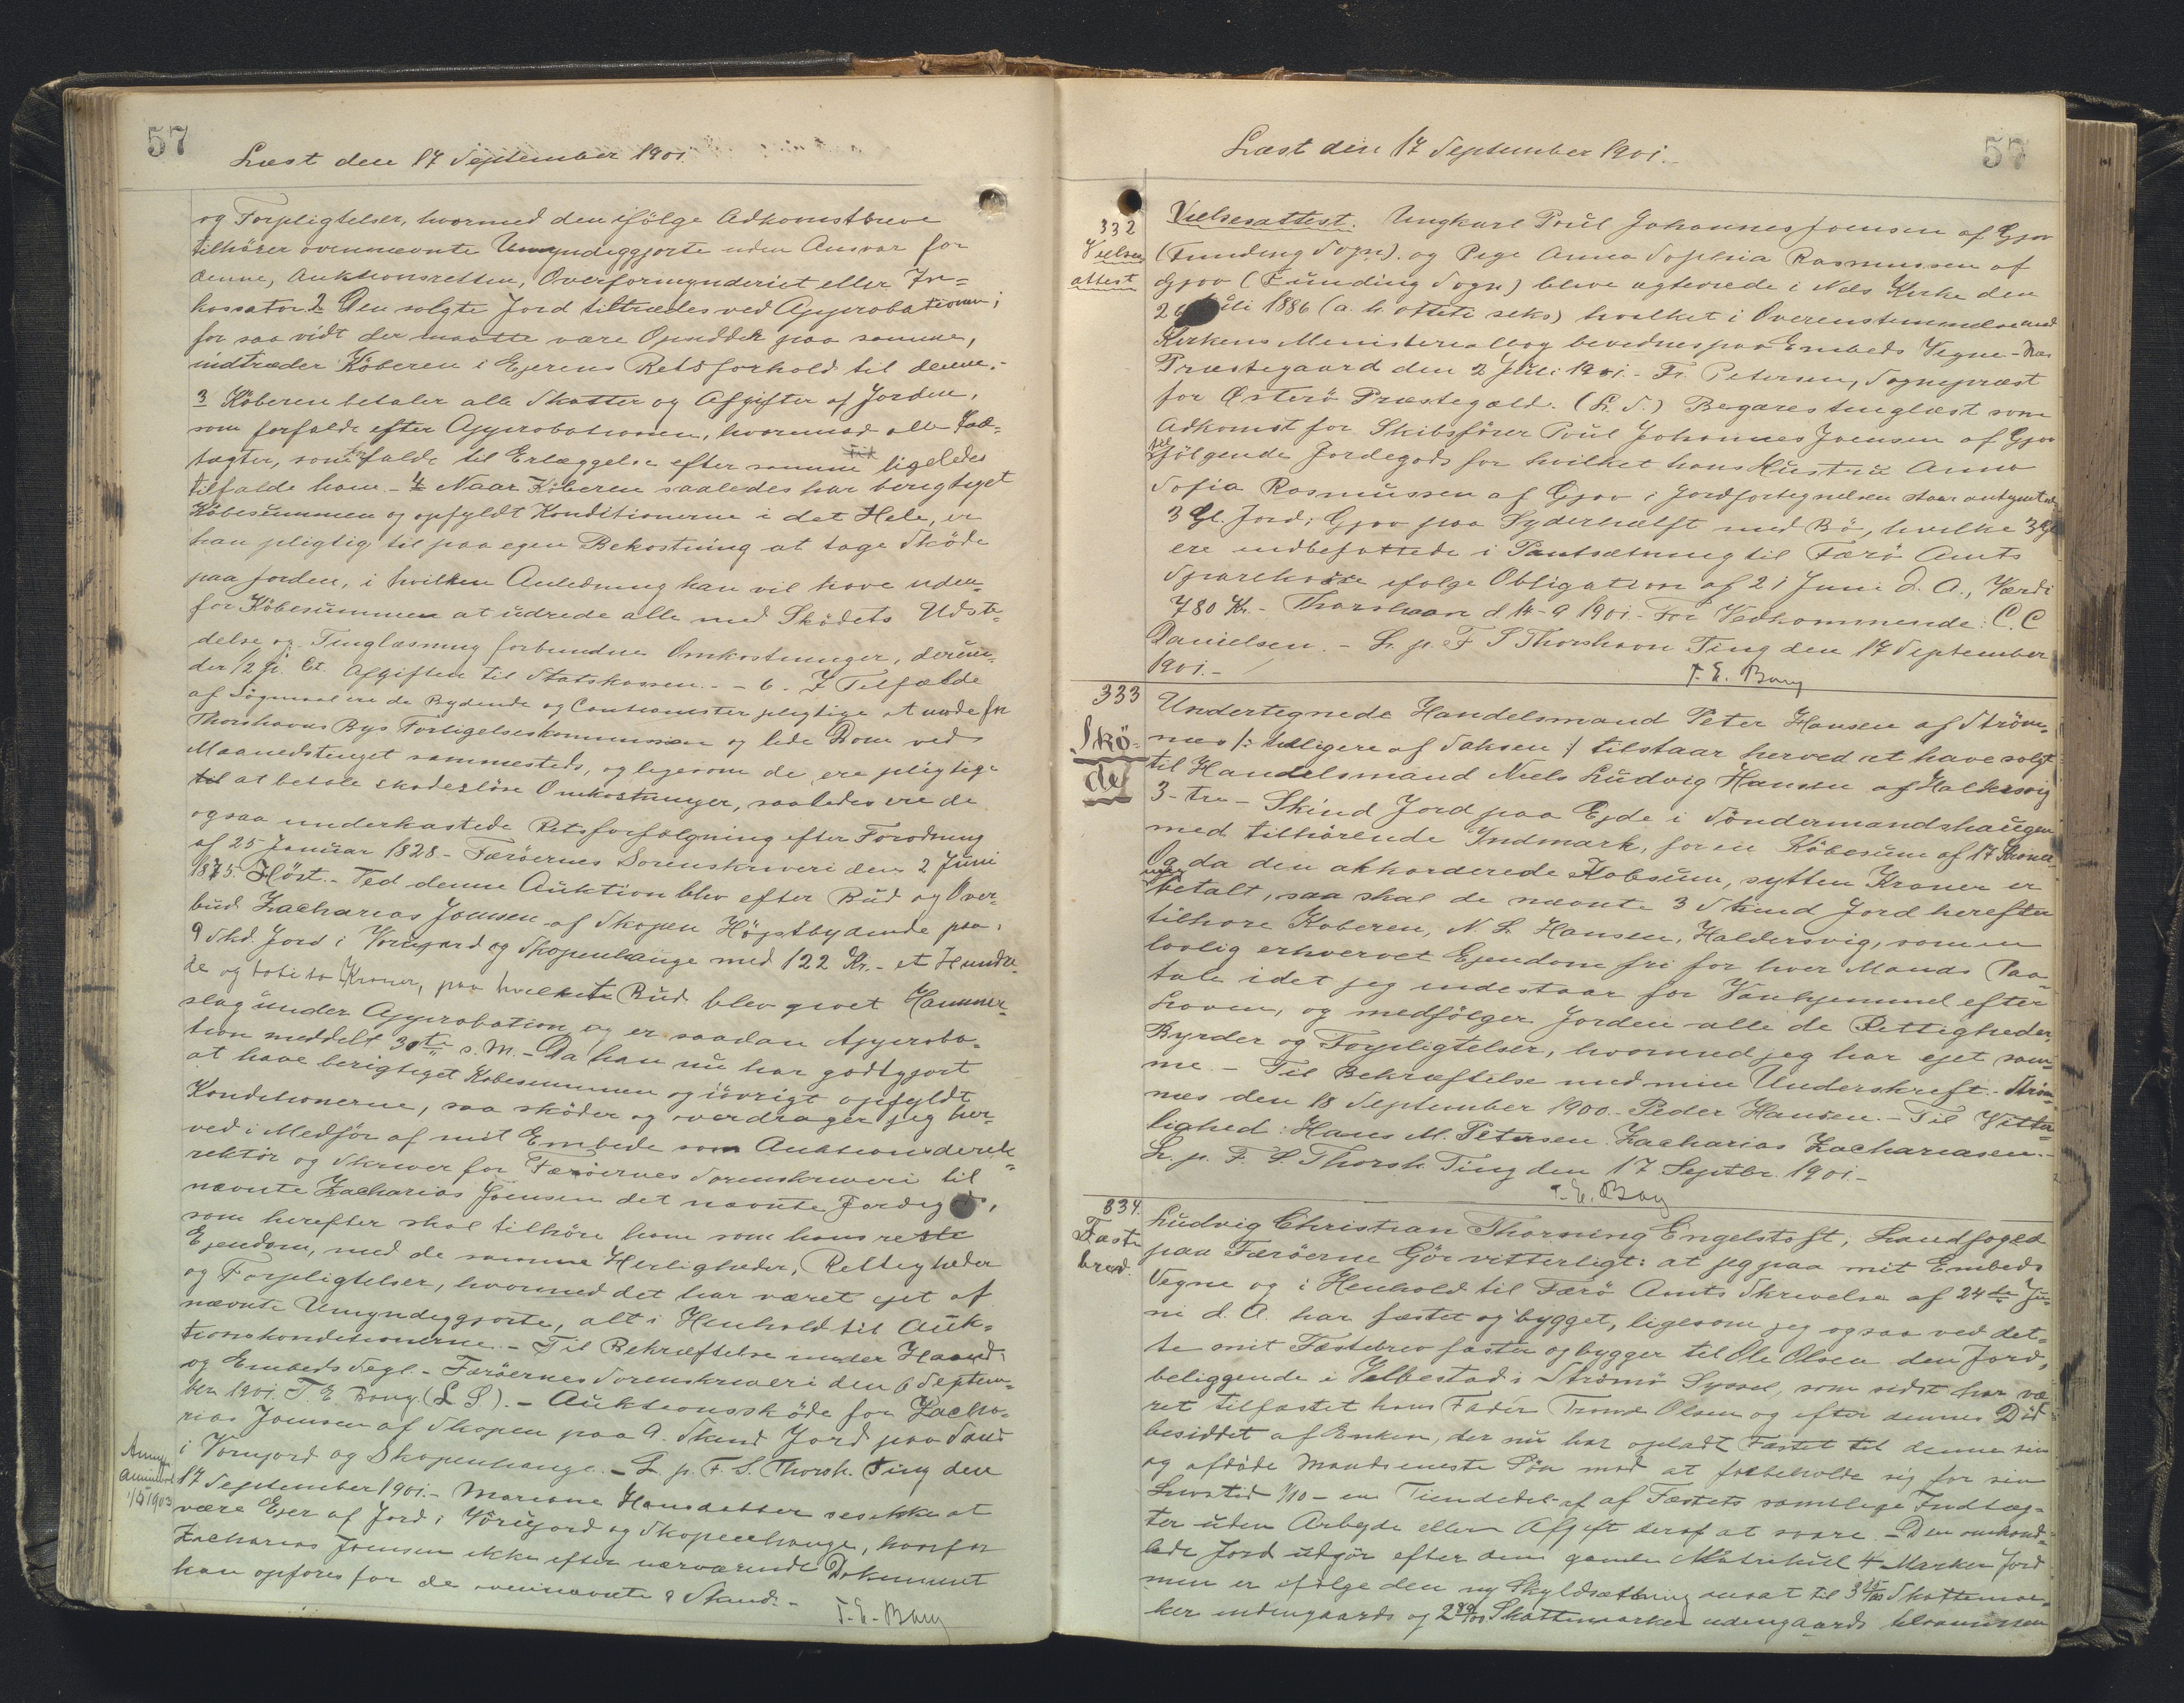 57
Læst den 17 September 1901.
og Forpligtelser, hvormed den ifölge Adkomstbreve
tilhörer ovennævnte Umyndiggjorte uden Ansvar for
denne, Auktionsretten, Overformynderiet eller In-
kassator. 2 Den solgte Jord tiltrædes ved Approbationen;
for saa vidt der maatte være Opsidder paa samme,
indtræder Köberen i Ejerens Retsforhold til denne.-
3 Köberen betaler alle Skatter og Afgifter af Jorden,
som forfalde efter Approbationen, hvorimod alle Ind-
tægter, som falde til Erlæggelse efter samme ligeledes
tilfalde ham. - 4 Naar Köberen saaledes har berigtiget
Köbesummen og opfyldt Konditionerne i det Hele, er
han pligtig til paa egen Bekostning at tage Sköde
paa Jorden, i hvilken Anledning han vil have uden-
for Köbesummen at udrede alle med Sködets Udste-
delse og Tinglæsning forbundne Omkostninger, derun-
der 1/2 p. Ct. Afgiften til Statskassen. - 6. I Tilfælde
af Sögsmaal ere de Bydende og Cautionister pligtige at möde for
Thorshavns Bys Forligelseskommission og lide Dom ved
Maanedstinget sammesteds, og ligesom de ere pligtige
til at betale skadeslöse Omkostninger, saaledes ere de
ogsaa underkastede Retsforfölgning efter Forordning
af 25 Januar 1828 - Færöernes Sorenskriveri den 2 Juni
1875. Höst. - Ved denne Auktion blev efter Bud og Over-
bud Zacharias Joensen af Skopen Höjstbydende paa
9 Skd. Jord i Vorujord og Skopenhauge med 122 Kr. - et Hundre-
de og toti to Kroner, paa hvilkete Bud blev givet Hammer-
slag under Approbation og er saadan Approba-
tion meddelt 30te s. M. - Da han nu har godtgjort
at have berigtiget Köbesummen og iövrigt opfyldt
Konditionerne, saa sköder og overdrager jeg her-
ved i Medför af mit Embede som Auktionsderek-
rektör og Skriver for Færöernes Sorenskriveri til
nævnte Zacharias Joensen det nævnte Jordegods,
som herefter skal tilhöre ham som hans rette
Ejendom, med de samme Herligheder, Rettigheder
og Forpligtelser, hvormed det har været ejet af
nævnte Umyndiggjorte, alt i Henhold til Auk-
tionskonditionerne. - Til Bekræftelse under Haand
og Embeds Segl. - Færöernes Sorenskriveri den 6 Septem-
ber 1901. T. E. Bang. (L S). - Auktionssköde for Zacha-
rias Joensen af Skopen paa 9. Skind Jord paa Sand
i Vorujord og Skopenhauge. - L. p. F. S. Thorsh. Ting den
17 September 1901. - Mariane Hansdatter ses ikke at
være Ejer af Jord i Vörujord og Skopenhauge, hvorfor
Zacharias Joensen ikke efter nærværende Dokument
kan opföres for de ovennævnte 9 Skind. -
T. E. Bang
1/5 1903
57
Læst den 17 September 1901.
332
Vielses
attest
Vielsesattest. Ungkarl Poul Johannes Joensen af Gjov
(Funding Sogn). og Pige Anna Sophia Rasmussen af
Gjov (Funding Sogn) bleve ægteviede i Næs Kirke den
Juli 1886 (a. h. otteti seks) hvilket i Overensstemmelse med
Kirkens Ministerialbog bevidnes paa Embeds Vegne - Næs
Præstegaard den 2 Juli 1901. - Fr. Petersen, Sognepræst
for Österö Præstegæld. (L. S.) Begæres tinglæst som
Adkomst for Skibsförer Poul Johannes Joensen af Gjov
fölgende Jordegods for hvilket hans Hustru Anna
Sofia Rasmussen af Gjov i Jordfortegnelsen staar antegnet
3 Gl. Jord i Gjov paa Syderhælft med Bö, hvilke 3 Gl
ere indbefattede i Pantsætning til Færö Amts
Sparekasse ifölge Obligation af 21 Juni d. A., Værdi
780 Kr. - Thorshavn d 14-9 1901. - For Vedkommende: C. C
Danielsen. - L. p. F S Thorshavn Ting den 17 September
1901. -
T. E. Bang
333
Skö-
de
Undertegnede Handelsmand Peter Hansen af Ström-
næs /: tidligere af Saksen :/ tilstaar herved at have solgt
til Handelsmand Niels Ludvig Hansen af Haldersvig
3 - tre - Skind Jord paa Ejde i Söndermandshaugen
med tilhörende Indmark, for en Köbesum af 17 Kroner
Og da den akkorderede Köbsum, sytten Kroner er
betalt, saa skal de nævnte 3 Skind Jord herefter
tilhöre Köberen, N. L. Hansen, Haldersvig, som en
lovlig erhvervet Ejendom fri for hver Mands Paa-
tale idet jeg indestaar for Vanhjemmel efter
Loven, og medfölger Jorden alle de Rettigheder,
Byrder og Forpligtelser, hvormed jeg har ejet sam-
me. - Til Bekræftelse med min Underskrift. - Ström-
næs den 18 September 1900. - Peder Hansen. - Til Vitter-
lighed: Hans M. Petersen. Zacharias Zachariasen. -
L. p. F. S. Thorsh. Ting den 17 Septbr. 1901. -
T. E. Bang
334.
Fæste
brev.
Ludvig Christian Thorning Engelstoft, Landfoged
paa Færöerne Gör vitterligt: at jeg paa mit Embeds
Vegne og i Henhold til Færö Amts Skrivelse af 24de Ju-
ni d. A. har fæstet og bygget, ligesom jeg ogsaa ved det-
te mit Fæstebrev fæster og bygger til Ole Olsen den Jord,
beliggende i Velbestad i Strömö Syssel, som sidst har væ
ret tilfæstet hans Fader Trond Olsen og efter dennes Död
besiddet af Enken, der nu har opladt Fæstet til denne sin
og afdöde Mands eneste Sön mod at forbeholde sig for sin
Livstid 1/10 - en Tiendedel - af af Fæstets samtlige Indtæg-
ter uden Arbejde eller Afgift deraf at svare. - Den omhand-
lede Jord udgör efter den gamle Matrikul 4 Marker Jord
men er ifölge den ny Skyldsætning ansat til 3 Skattemar-
ker indengaards og 2 Skattemarker udengaards tilsammen